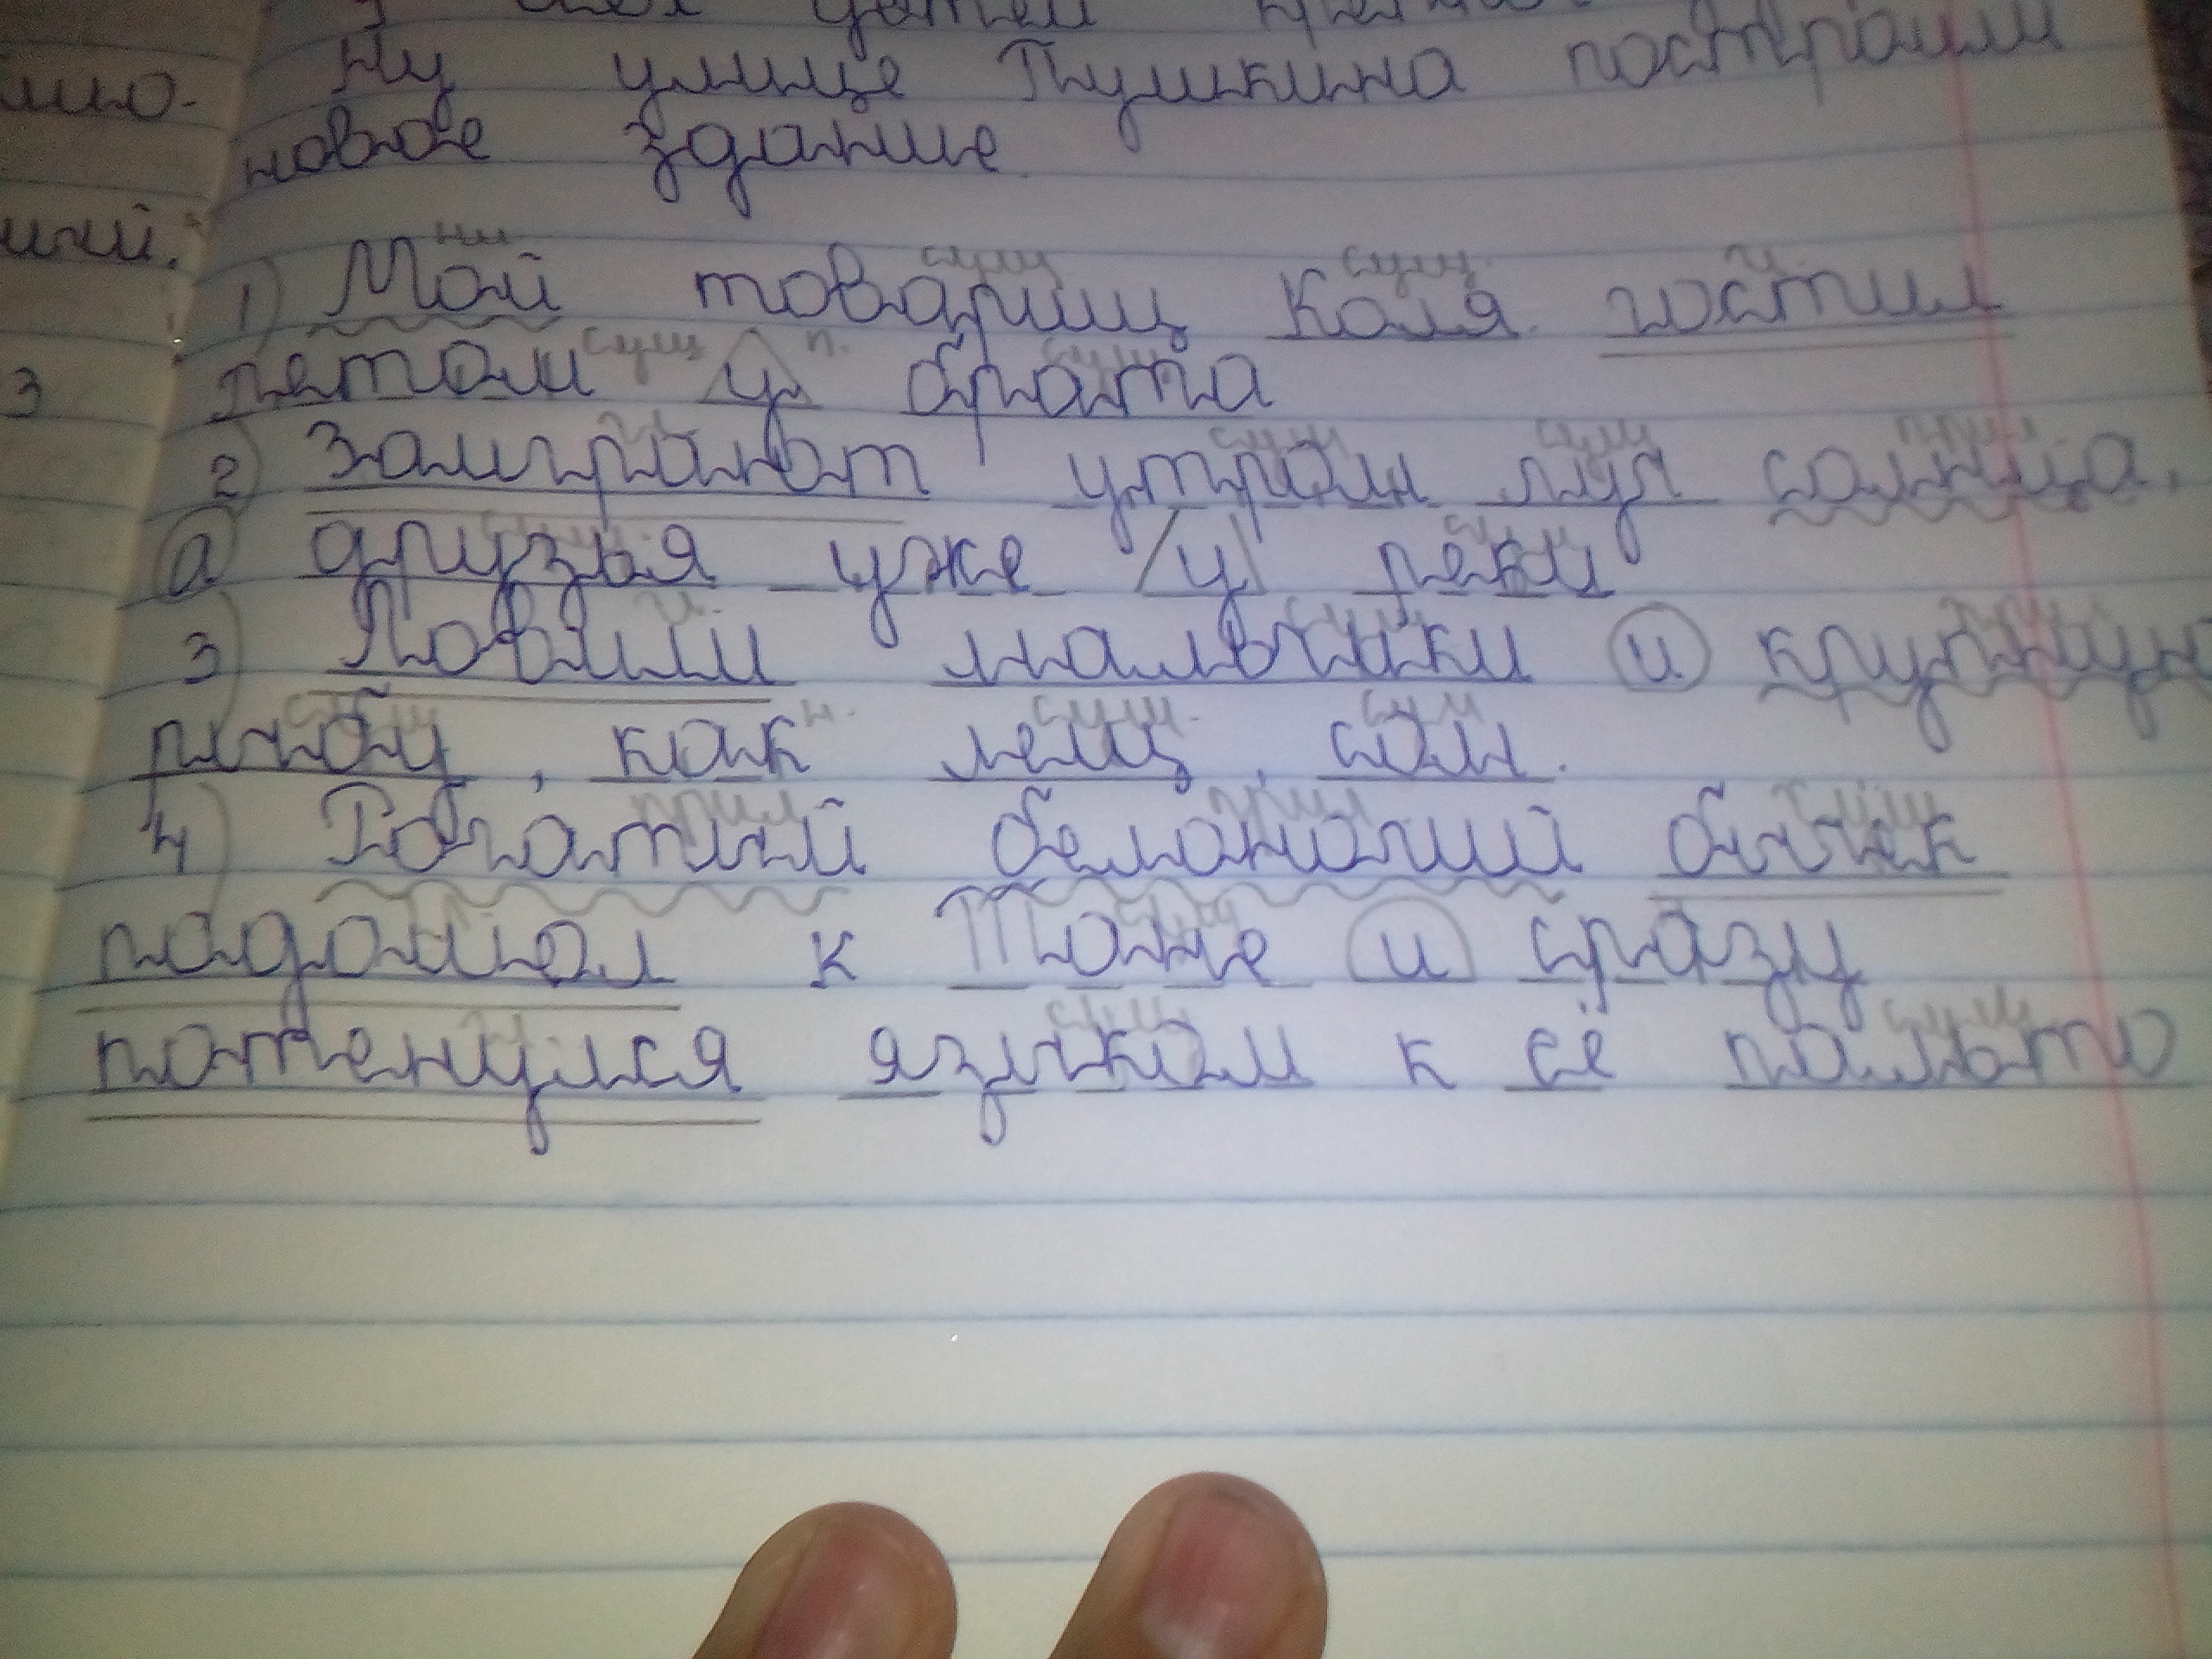 детей
Ну улице Пушкина построили
новое здание.
1) Мой товарищ Коля гостил
летом у брата
2) Заиграют утром луч солнца,
а друзья уже у реки
3) Ловили мальчики и крупную
рыбу, как лещ, сом.
4) Рогатый белоногий бычек
подошел к Тоне и сразу
потенулся язычком к её пальто